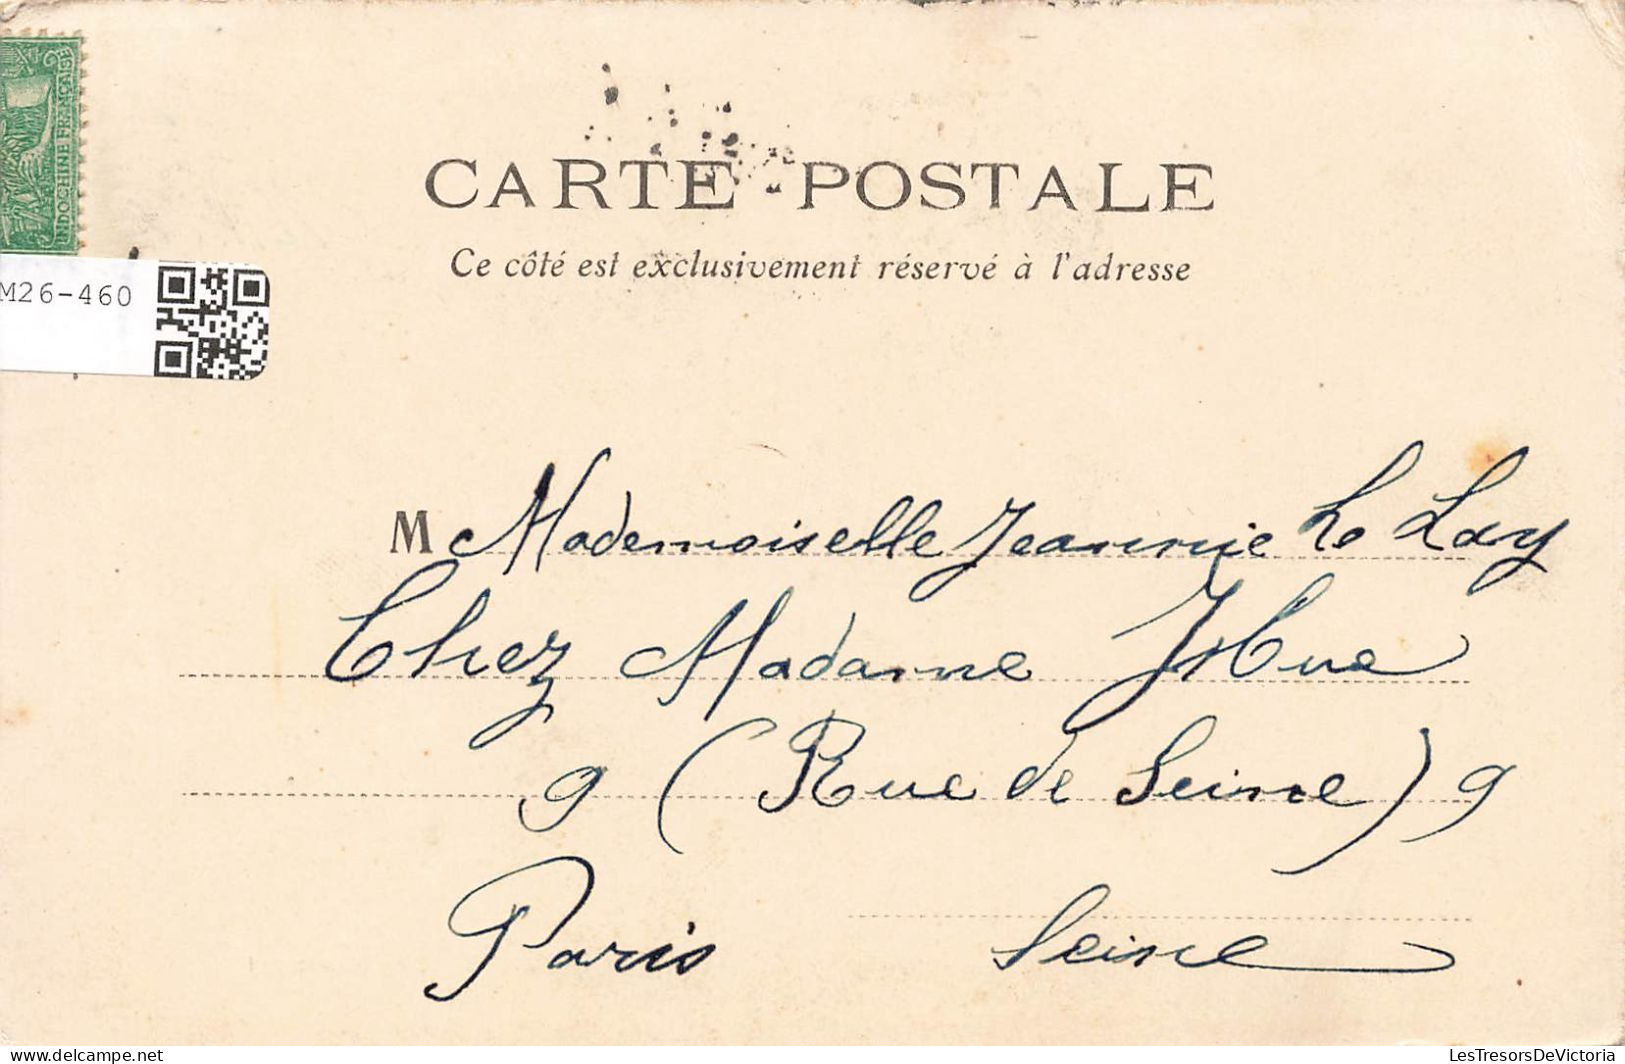 INDOCHINE FRANÇAISE
CARTE POSTALE
Ce côté est exclusivement réservé à l'adresse
M26-460
M Mademoiselle Jeannie Le Lay
Chez Madame Hue
9 (Rue de Seine) 9
Paris Seine
delcampe.net
LesTresorsDeVictoria